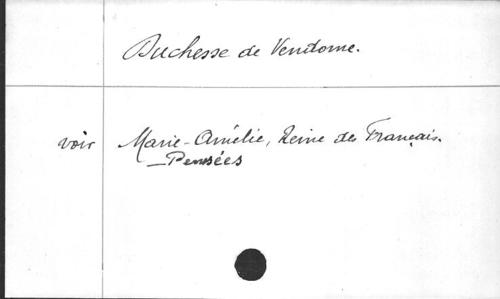 Duchesse de Vendome.
voir Marie-Amélie, Reine des Français.
- Pensées